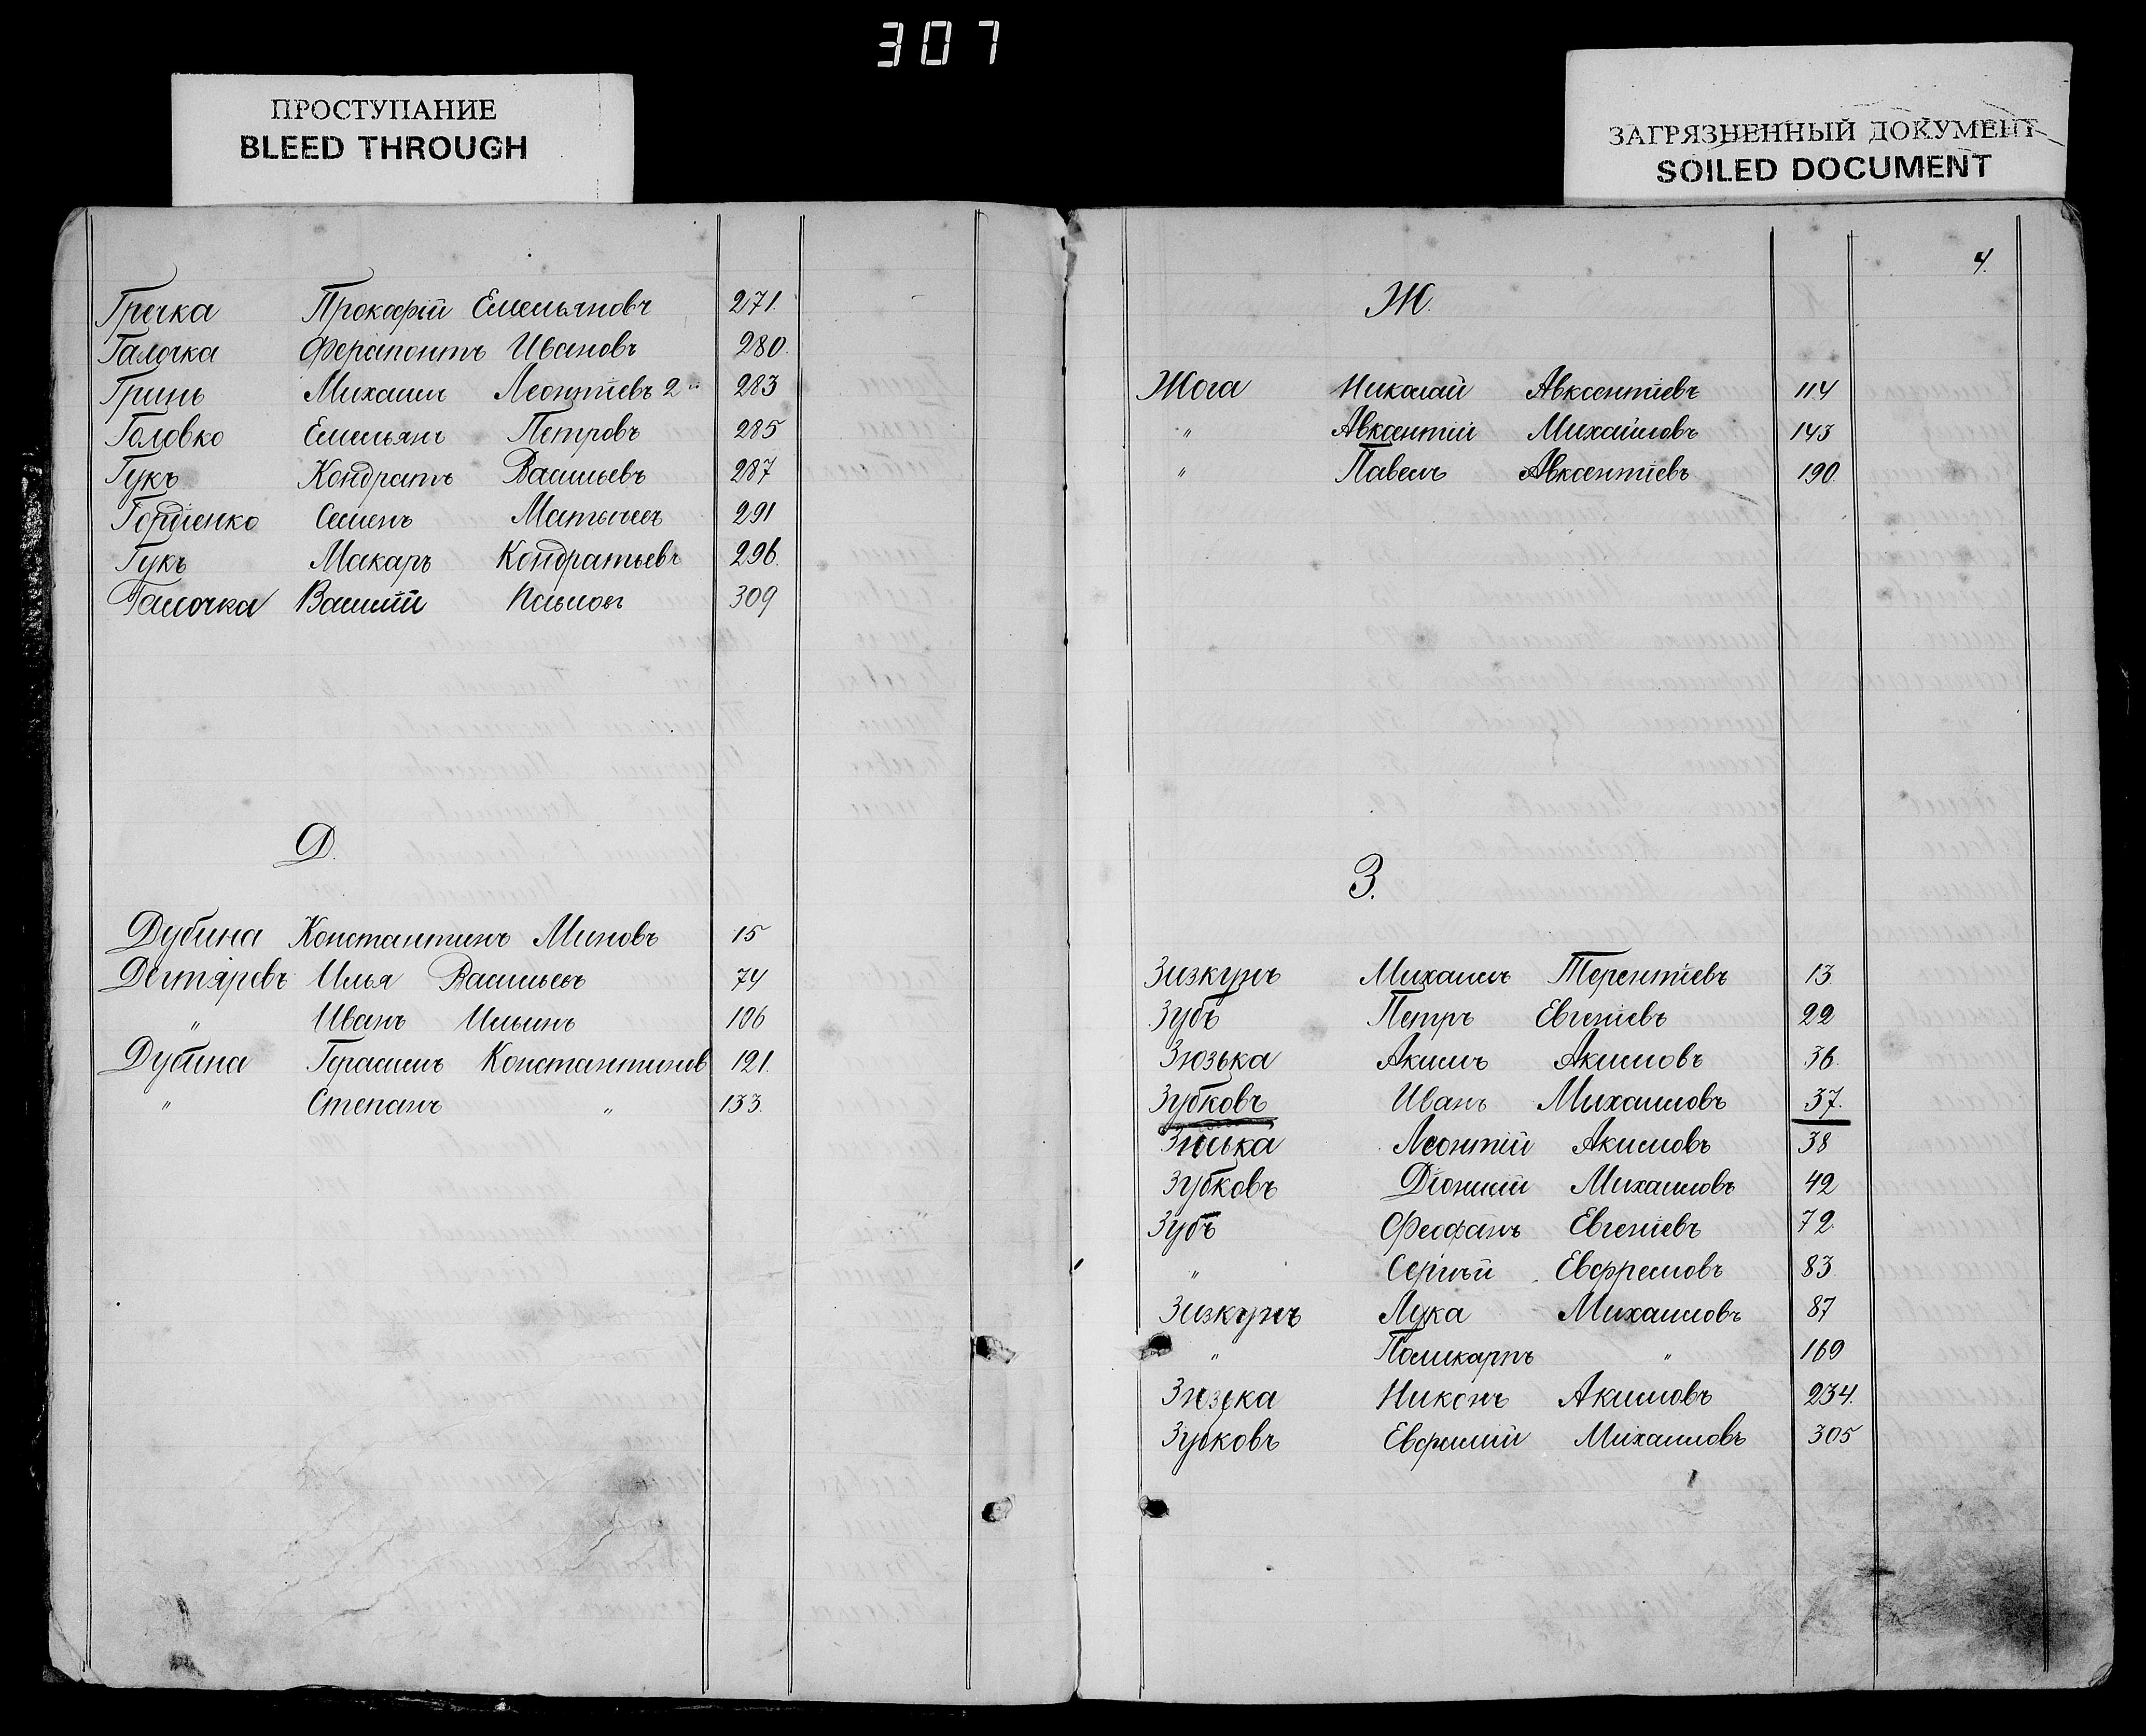 307
ПРОСТУПАНИЕ
BLEED THROUGH
ЗАГРЯЗНЕННЫЙ ДОКУМЕНТ
SOILED DOCUMENT
Гречка Прокофій Емельяновъ 271.
Галочка Ферапонтъ Ивановъ 280.
Гринь Михаилъ Леонтіевъ 2й 283
Головко Емельянъ Петровъ 285
Гукъ Кондратъ Васильевъ 287
Гордіенко Семенъ 291
Гукъ Макаръ Кондратьевъ 296.
Галочка Василій 309
Д.
Дубина Константинъ Миновъ 15
Дегтяровъ Илья Васильевъ 74
" Иванъ Ильинъ 106
Дубина Герасимъ Константинов 121.
" Степанъ " 133.
4.
Ж.
Жога Николай Авксентіевъ 114
" Авксентій Михайловъ 143
" Павелъ Авксентіевъ 190.
З.
Зизкунъ Михаилъ Терентіевъ 13.
Зубъ Петръ Евгеніевъ 22
Зюзька Акимъ Акимовъ 36.
Зубковъ Иванъ Михаиловъ 37.
Зюська Леонтій Акимовъ 38
Зубковъ Діонисій Михаиловъ 42
Зубъ Феофанъ Евгеніевъ 72.
" Сергѣй Евфремовъ 83.
Зизкунъ Лука Михаиловъ 87
" Поликарпъ " 169
Зюзька Никонъ Акимовъ 234.
Зубковъ Евфимій Михаиловъ 305